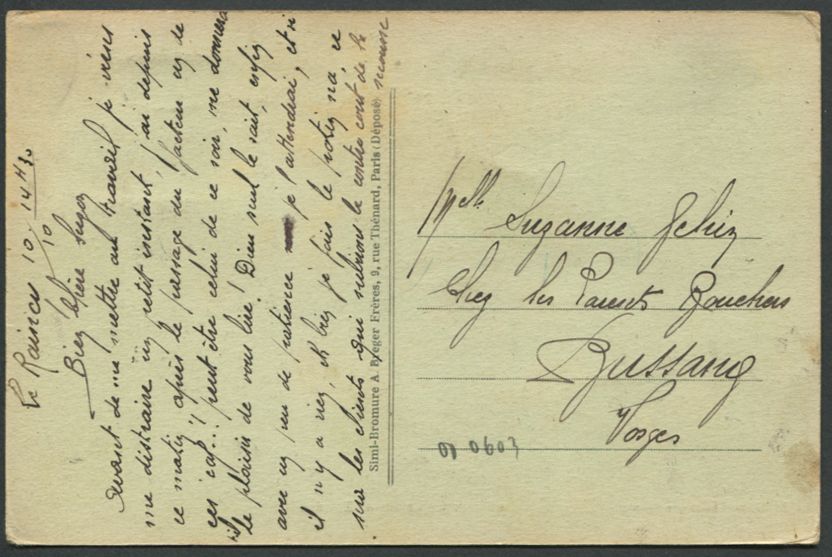 Le Raincy 10/10 14H30
Bien chère Suzon
Avant de me mettre au travail je viens
me distraire un petit instant, j'ai depuis
ce matin après le passage du facteur un de
ces caf..! peut être celui de ce soir, me donnera
t'il le plaisir de vous lire! Dieu seul le sait, enfin
avec un peu de patience j'attendrai, et si
il n'y a rien, eh bien je fais le potin na ce
sur les clients qui subiront le contre coup de la mousse
Simi-Bromure A. Breger Frères, 9, rue Thénard, Paris (Déposé)
Melle Suzanne
Chez les Parents Bouchers
Bussang
Vosges
0603